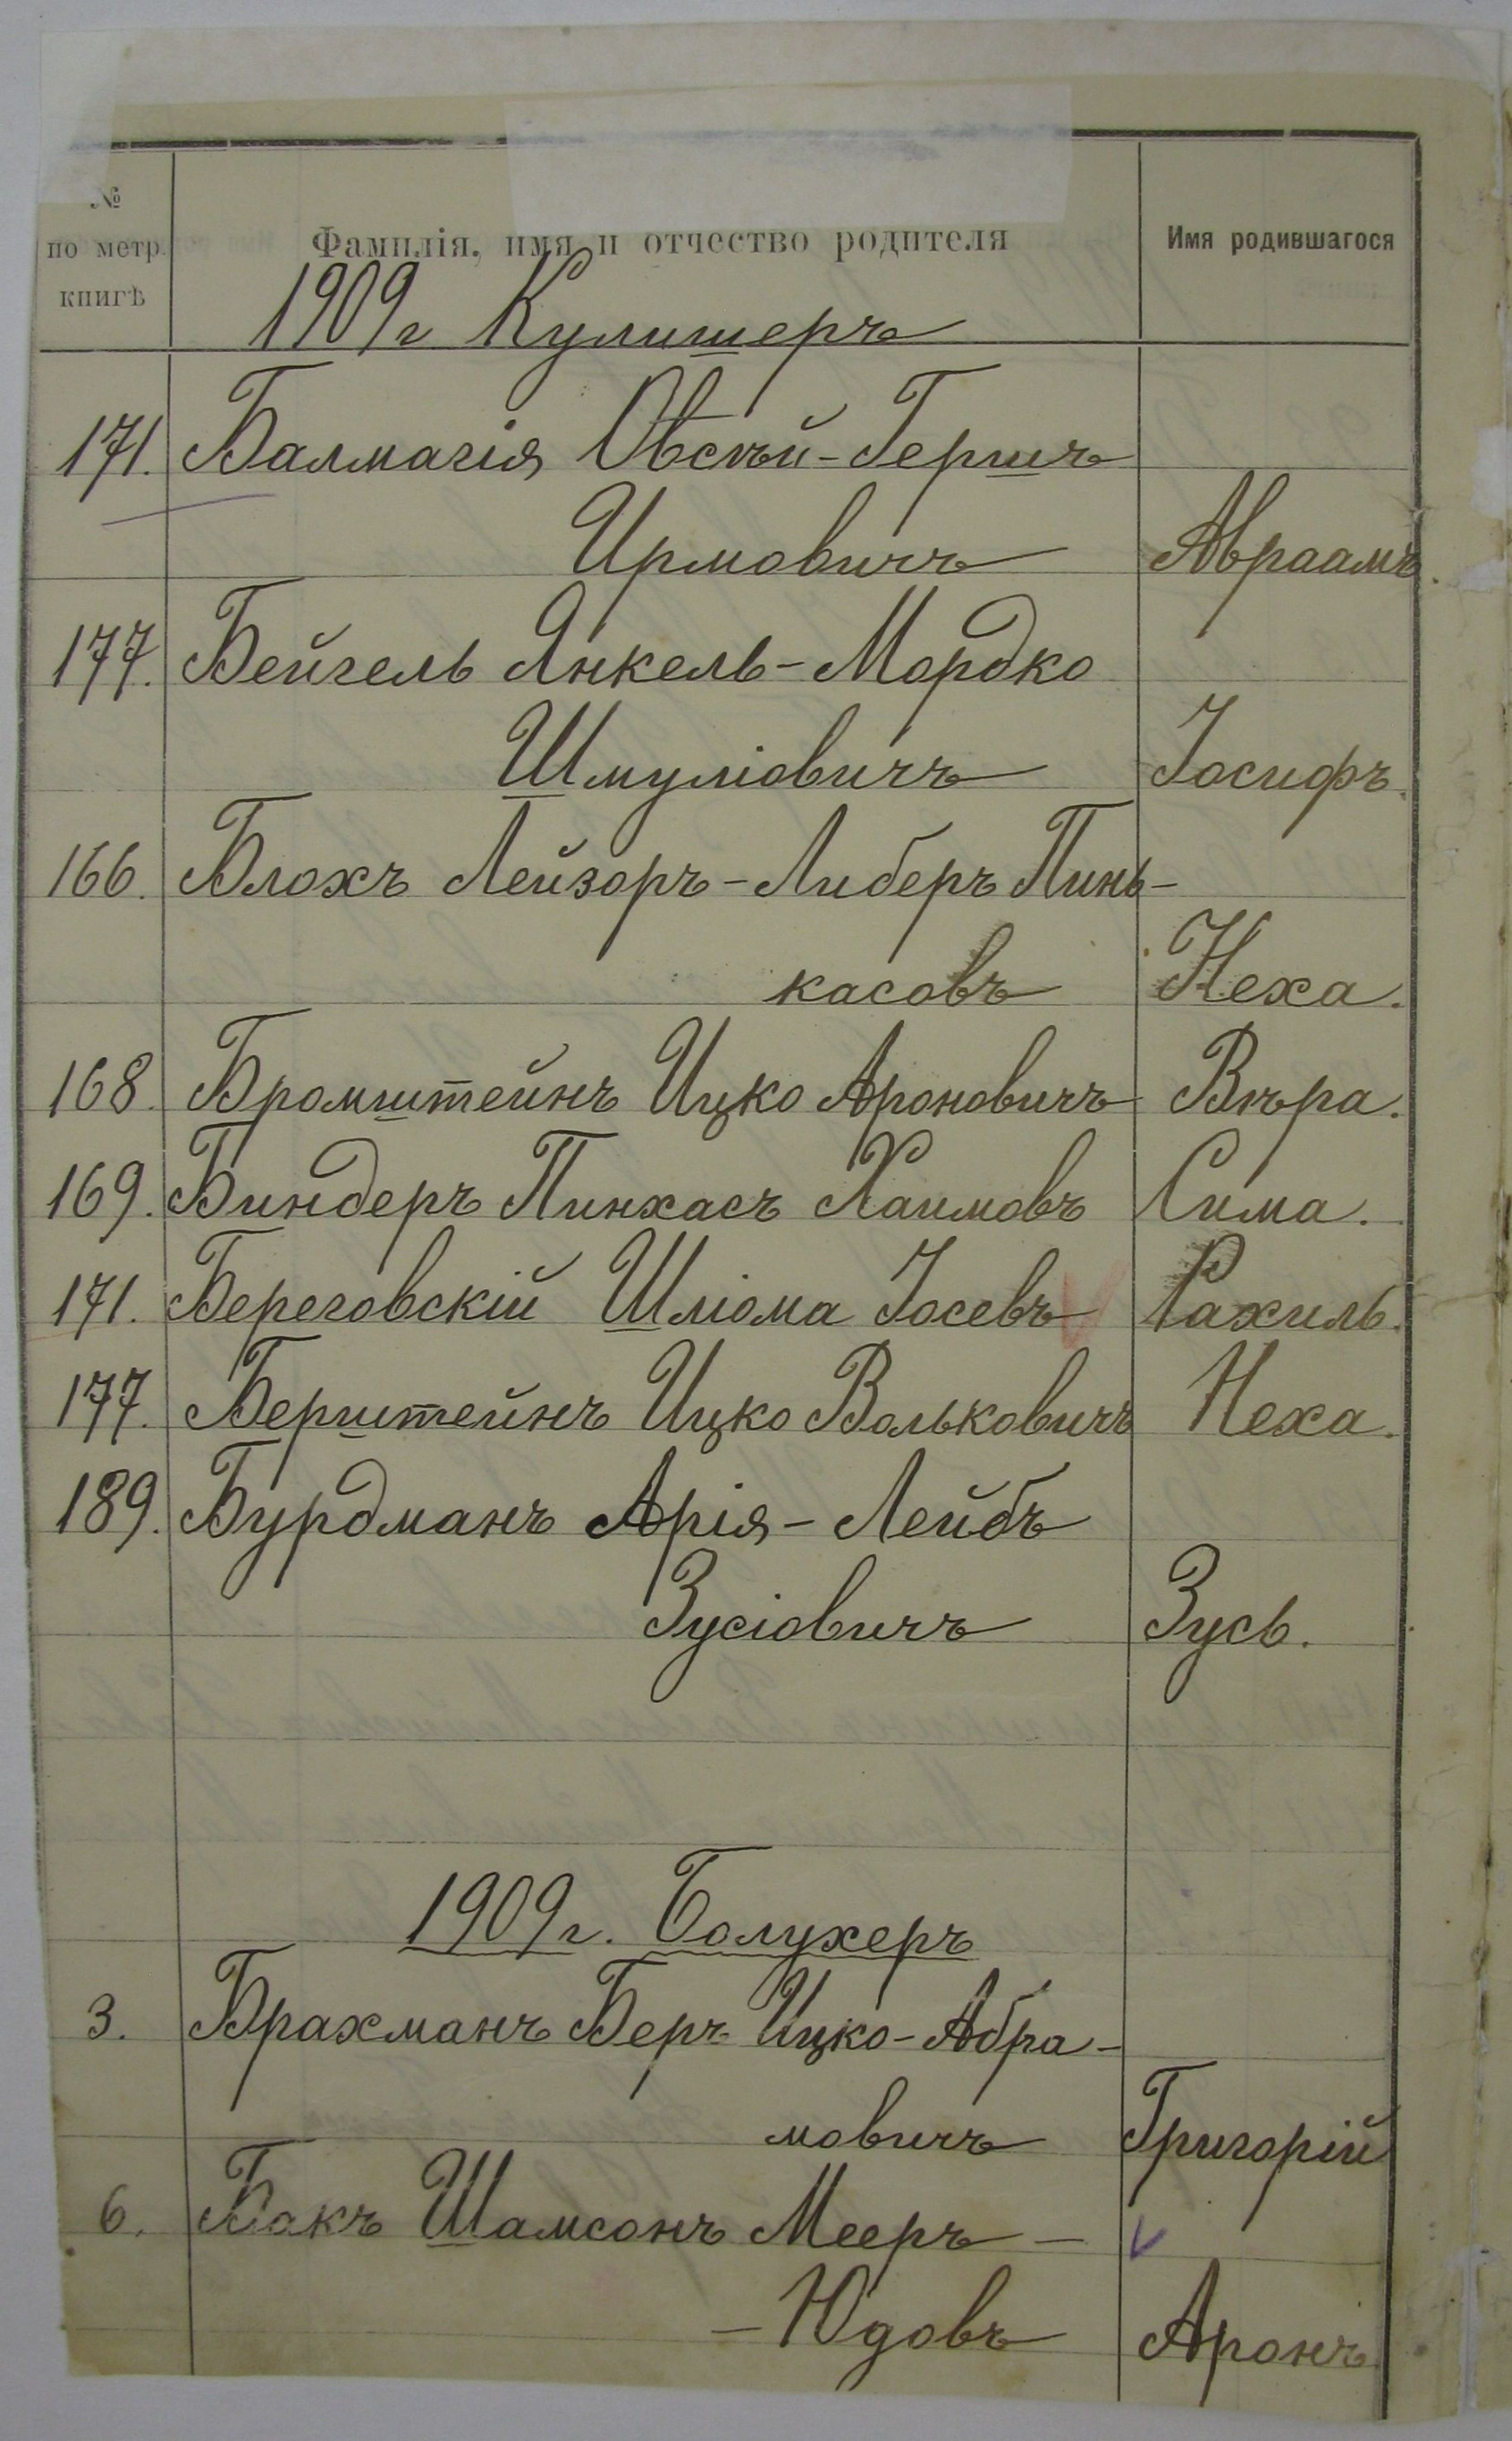 №
по метр.
книгѣ
Фамилія, имя и отчество родителя
Имя родившагося
1909 г Кулишеръ
171. Балмагія Овсѣй-Гершъ
Ирмовичъ Авраамъ.
177. Бейгель Янкель-Мордко
Шмуліовичъ Іосифъ.
166. Блохъ Лейзоръ-Либеръ Пинь-
касовъ Неха.
168. Бромштейнъ Ицко Ароновичъ Вѣра.
169. Биндеръ Пинхасъ Хаимовъ Сима.
171. Береговскій Шліома Іосевъ Рахиль.
177. Берштейнъ Ицко Вольковичъ Неха.
189. Бурдманъ Арія-Лейбъ
Зусіовичъ Зусь.
1909 г. Болухеръ
3. Брахманъ Беръ Ицко-Абра-
мовичъ Григорій
6. Бакъ Шамсонъ Мееръ-
-Юдовъ Аронъ.